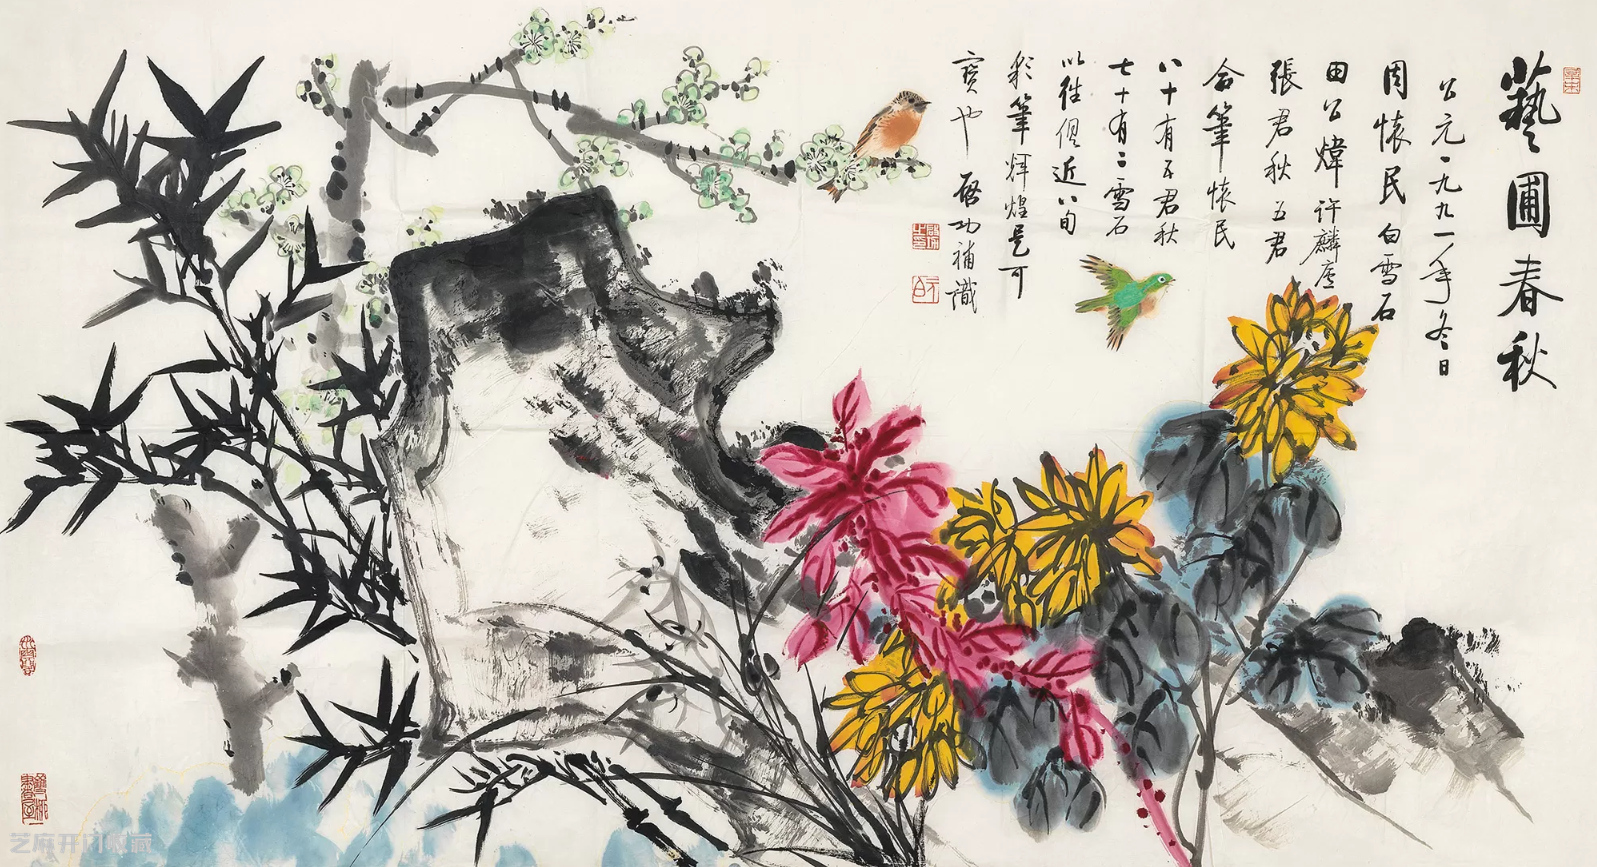 藝圃春秋
公元一九九一年冬日
周懷民 白雪石
田公煒 許麟廬
張君秋 五君
合筆 懷民
八十有五 君秋
七十有二 雪石
以往俱近八旬
彩筆輝煌是可
寶也 啟功補識
芝麻开门收藏